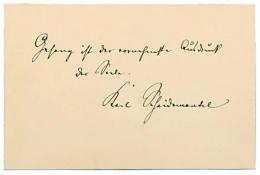 Gesang ist der vornehmste Ausdruck
der Seele.
Karl Scheidemantel